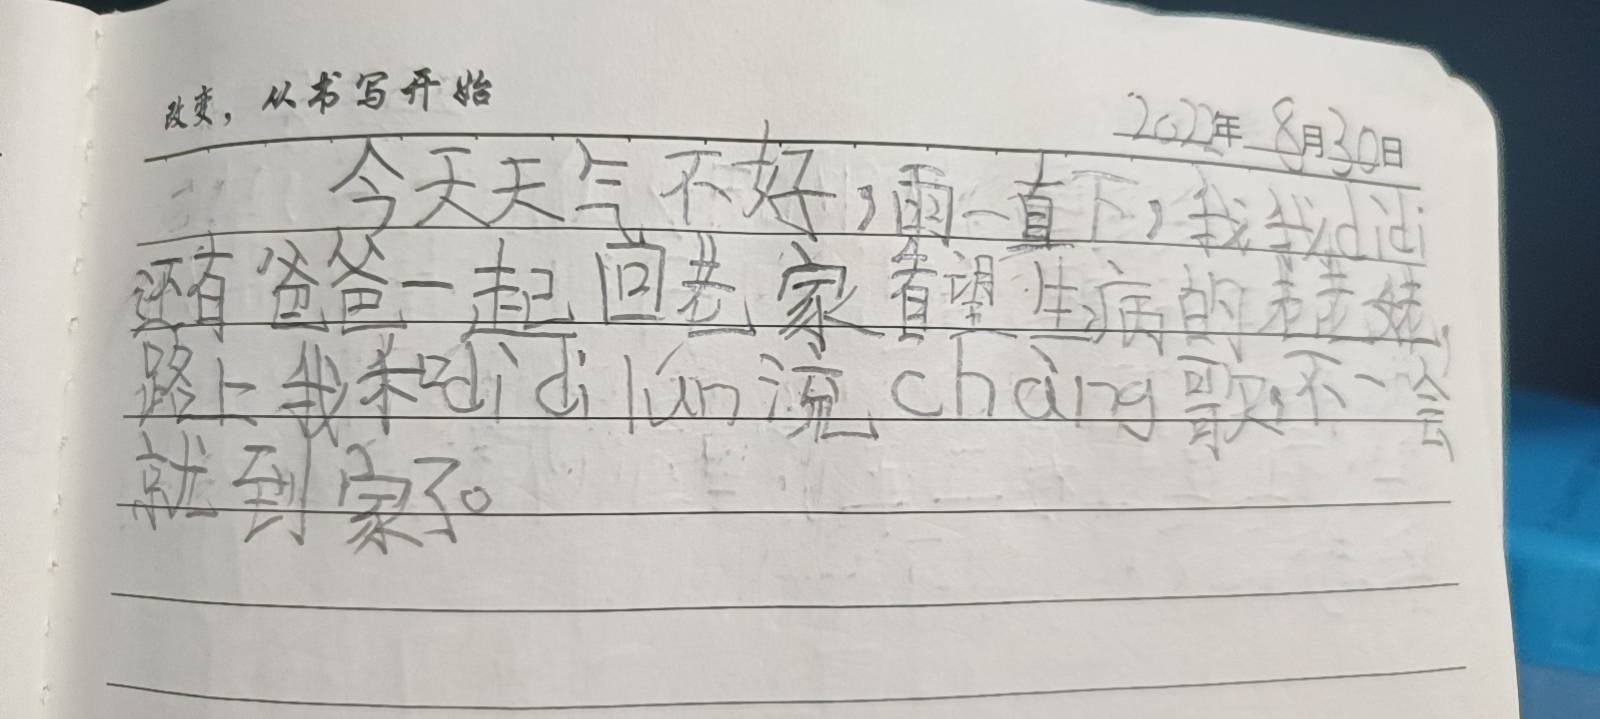 改变，从书写开始
2022年 8月30日
今天天气不好，雨一直下，我 我didi
还有爸爸一起回老家看望生病的老老姥，
路上我和didi lún流chàng歌，不一会
就到家了。